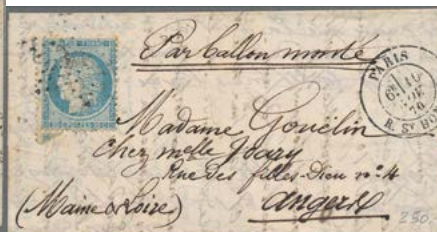 Par ballon monté
PARIS
6E
70
R. ST HO
Madame Gouëlin
chez melle Joary
Rue des filles-Dieu no 4
(Maine & Loire)
angers
250.